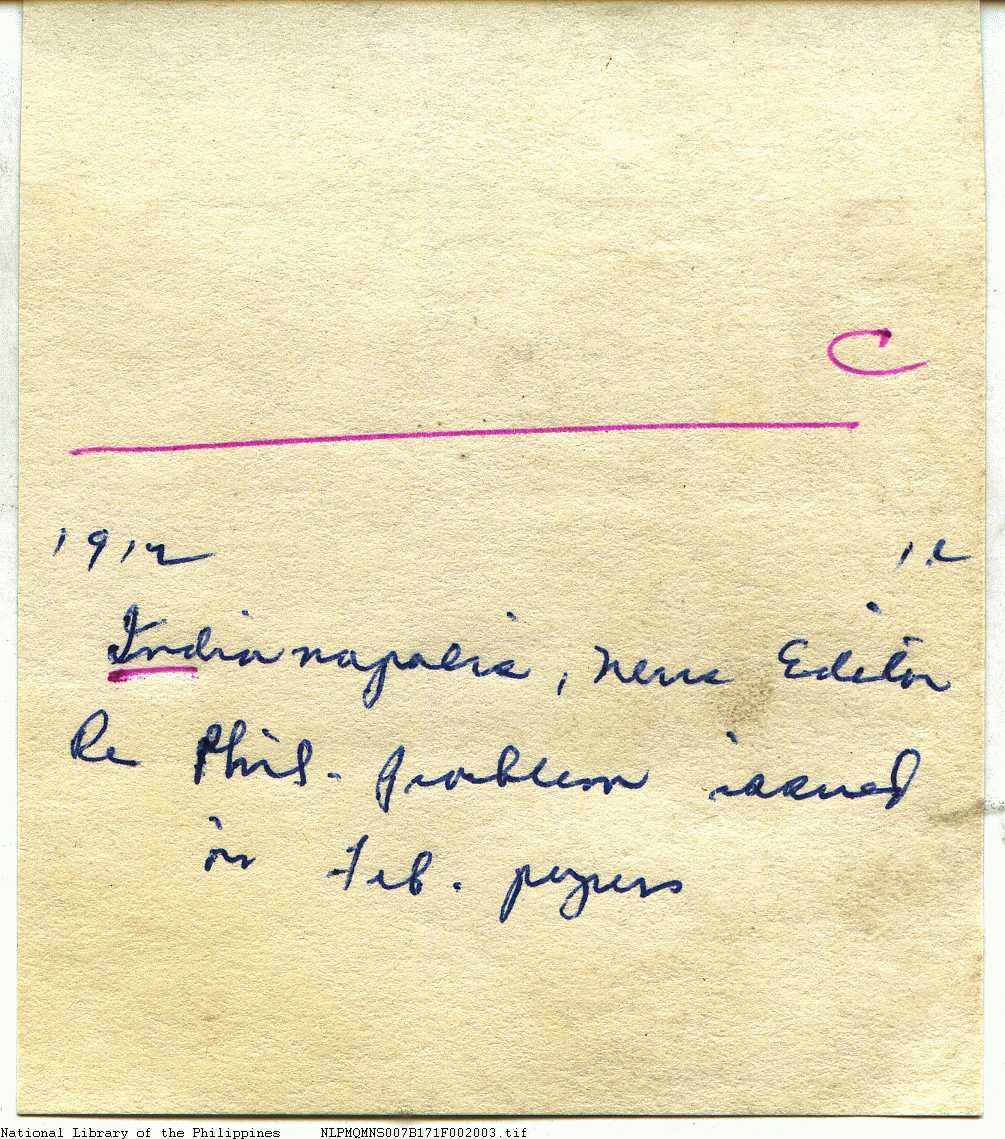 C
1912
Indianapolis, News Editor
Re Phil. problem issued
in Feb. papers
National Library of the Philippines NLPMQMNS007B171F002003.tif